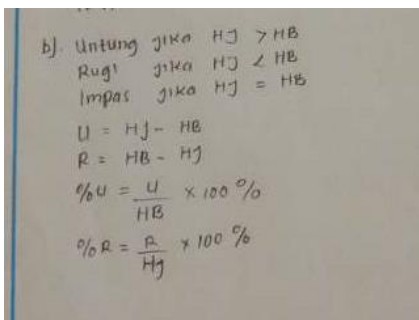 b). Untung jika HJ > HB
Rugi jika HJ < HB
Impas jika HJ = HB
U = HJ - HB
R = HB - HJ
%U = U/HB × 100 %
%R = R/Hg × 100 %